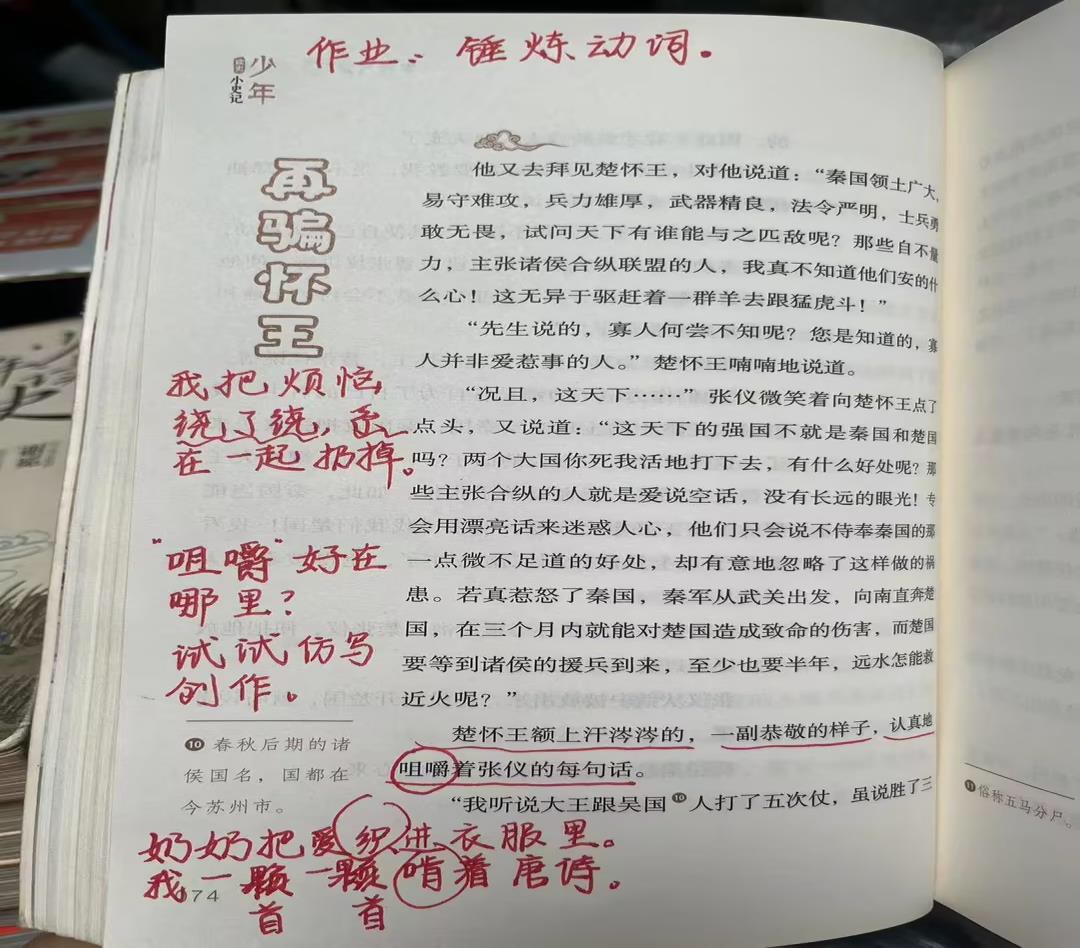 作业：锤炼动词。
少年
小史记
再骗怀王
他又去拜见楚怀王，对他说道：“秦国领土广大，
易守难攻，兵力雄厚，武器精良，法令严明，士兵勇
敢无畏，试问天下有谁能与之匹敌呢？那些自不量
力，主张诸侯合纵联盟的人，我真不知道他们安的什
么心！这无异于驱赶着一群羊去跟猛虎斗！”
“先生说的，寡人何尝不知呢？您是知道的，寡
人并非爱惹事的人。”楚怀王喃喃地说道。
“况且，这天下……”张仪微笑着向楚怀王点了
点头，又说道：“这天下的强国不就是秦国和楚国
吗？两个大国你死我活地打下去，有什么好处呢？那
些主张合纵的人就是爱说空话，没有长远的眼光！专
会用漂亮话来迷惑人心，他们只会说不侍奉秦国的那
一点微不足道的好处，却有意地忽略了这样做的祸
患。若真惹怒了秦国，秦军从武关出发，向南直奔楚
国，在三个月内就能对楚国造成致命的伤害，而楚国
要等到诸侯的援兵到来，至少也要半年，远水怎能救
近火呢？”
楚怀王额上汗涔涔的，一副恭敬的样子，认真地
咀嚼着张仪的每句话。
“我听说大王跟吴国❿人打了五次仗，虽说胜了三
我把烦恼，
绕了绕，丢
在一起扔掉。
“咀嚼”好在
哪里？
试试仿写
创作。
❿春秋后期的诸
侯国名，国都在
今苏州市。
奶奶把爱织进衣服里。
我一颗一颗啃着唐诗。
首 首
74
⓫俗称五马分尸。